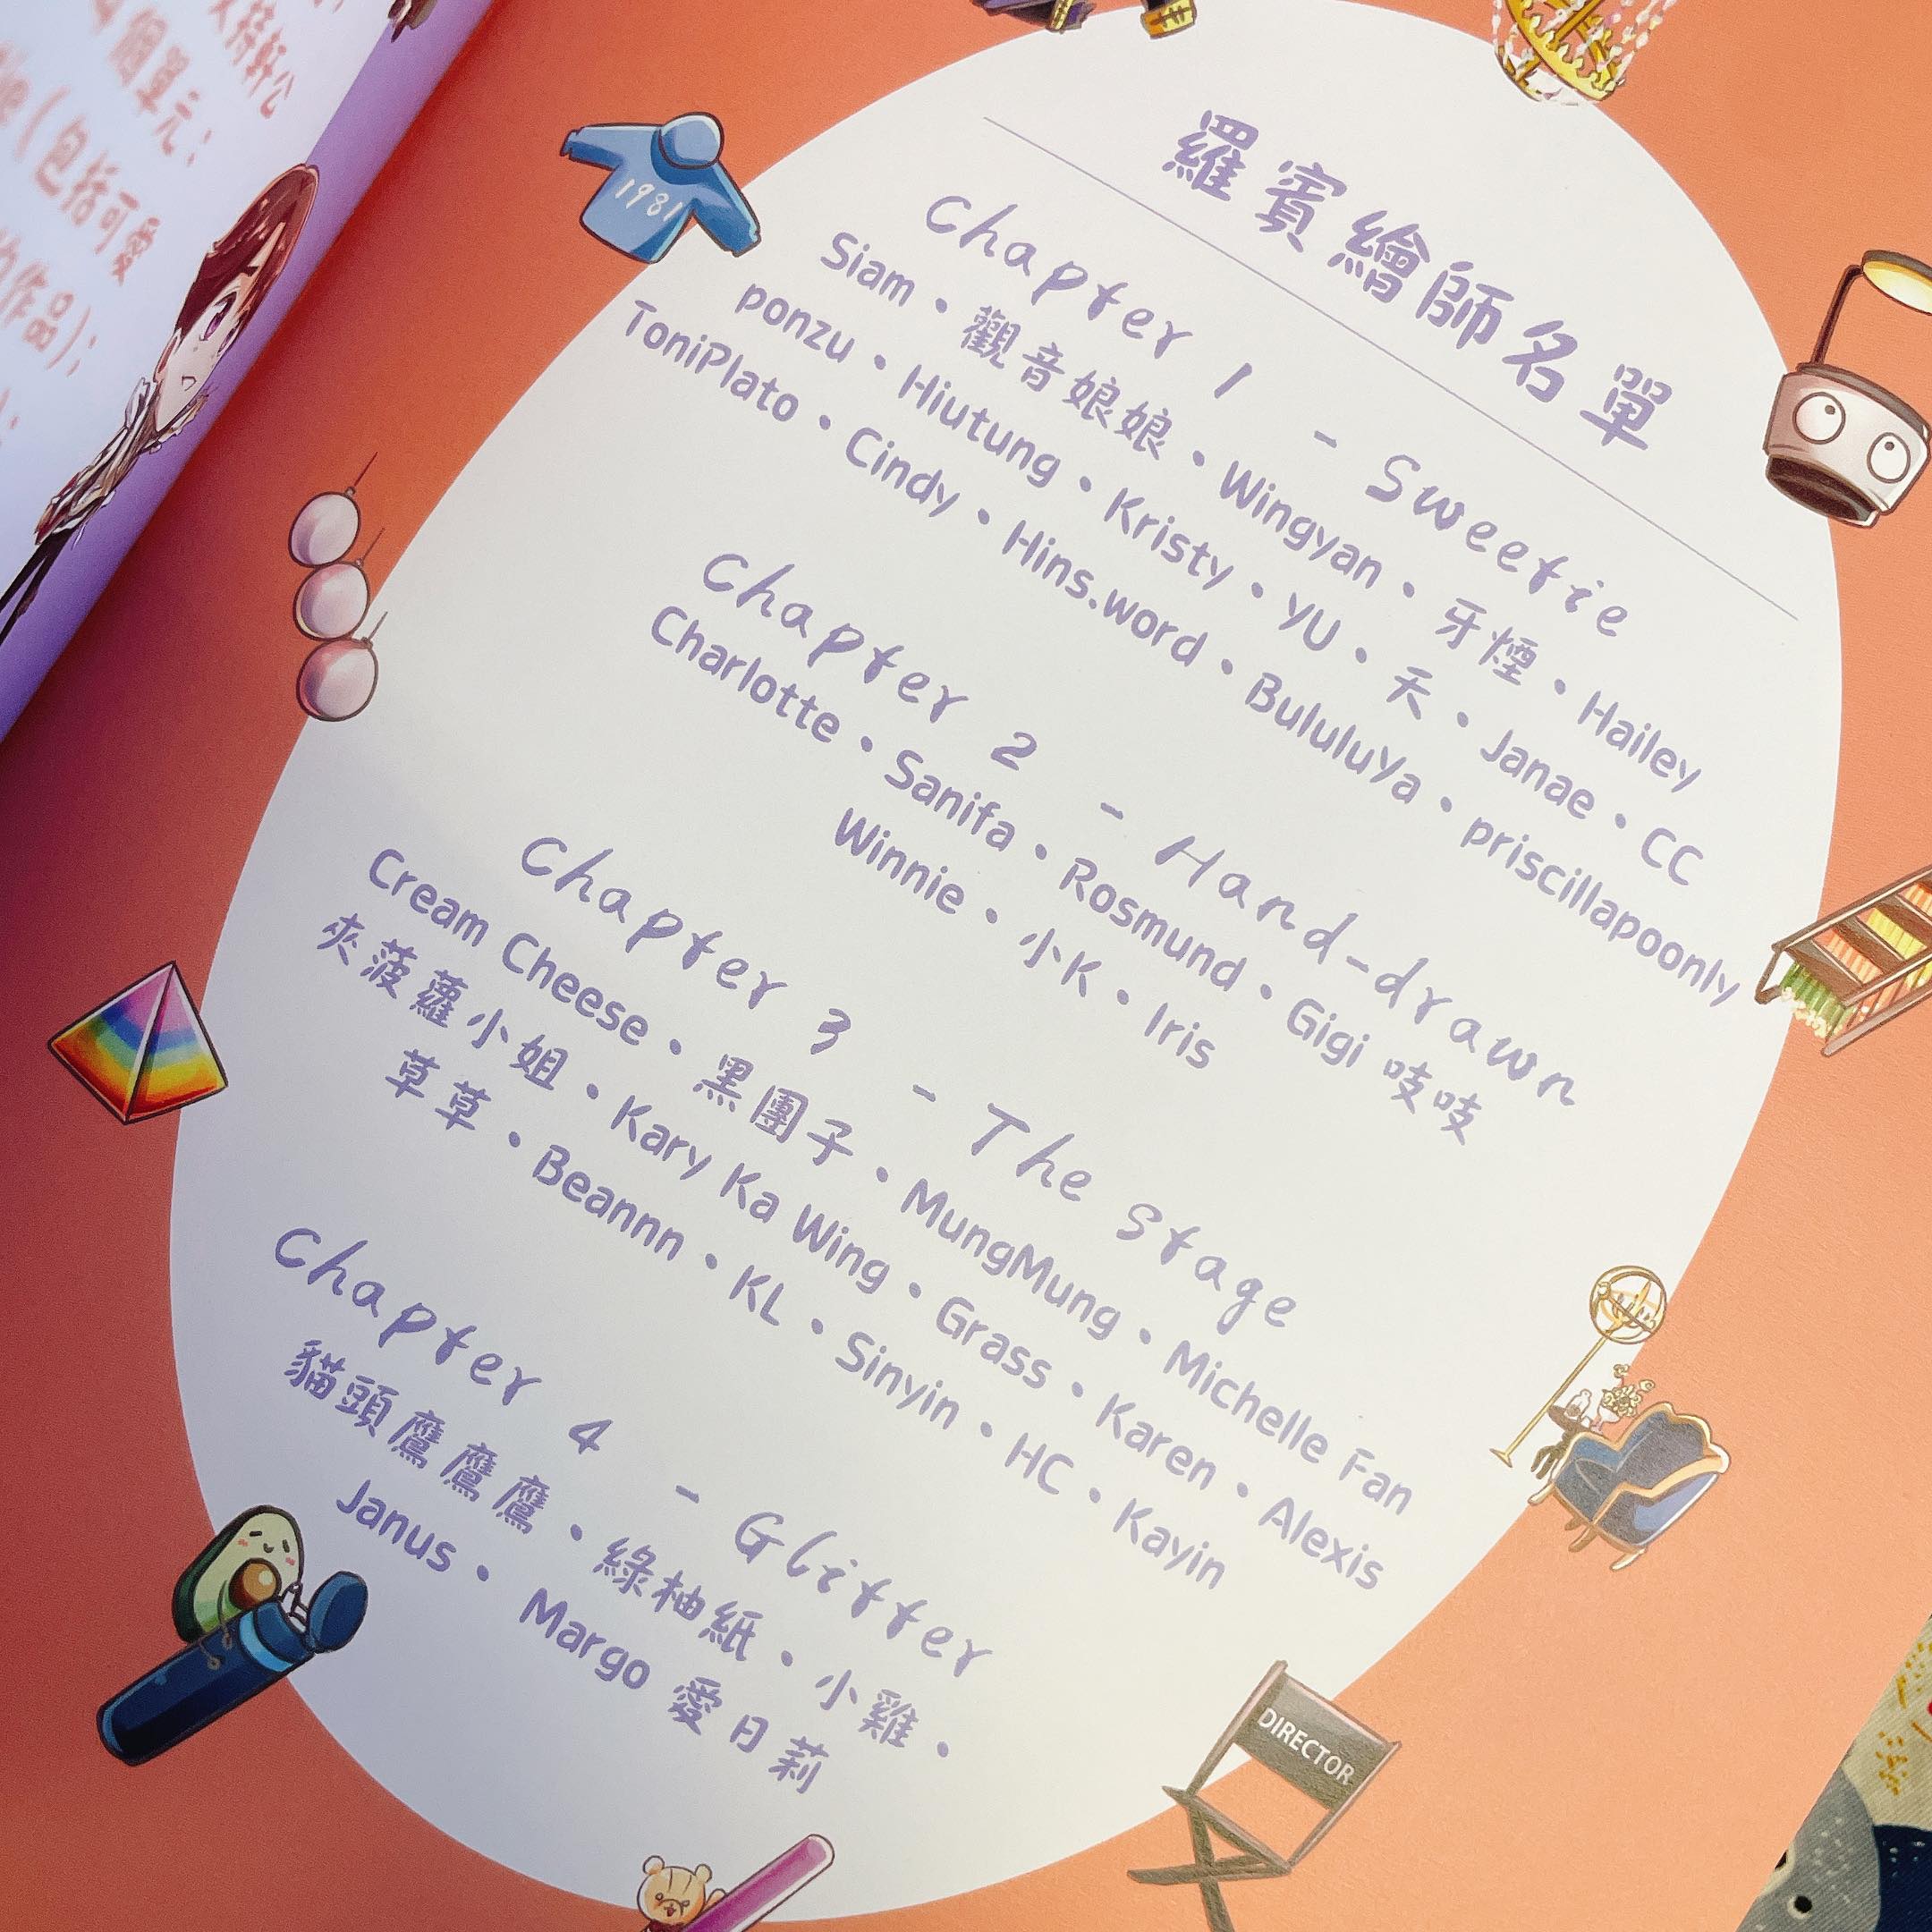 個單元：
(包括可愛
作品)；
1981
羅賓繪師名單
Chapter 1 - Sweetie
Siam • 觀音娘娘 • Wingyan • 牙煙 • Hailey
ponzu • Hiutung • Kristy • YU • 天 • Janae • CC
ToniPlato • Cindy • Hins.word • BululuYa • priscillapoonly
Chapter 2 - Hand-drawn
Charlotte • Sanifa • Rosmund • Gigi 吱吱
Winnie • 小K • Iris
Chapter 3 - The Stage
Cream Cheese • 黑團子 • MungMung • Michelle Fan
夾菠蘿小姐 • Kary Ka Wing • Grass • Karen • Alexis
草草 • Beannn • KL • Sinyin • HC • Kayin
Chapter 4 - Glitter
貓頭鷹鷹鷹 • 綠柚紙 • 小雞 •
Janus • Margo 愛日莉
DIRECTOR